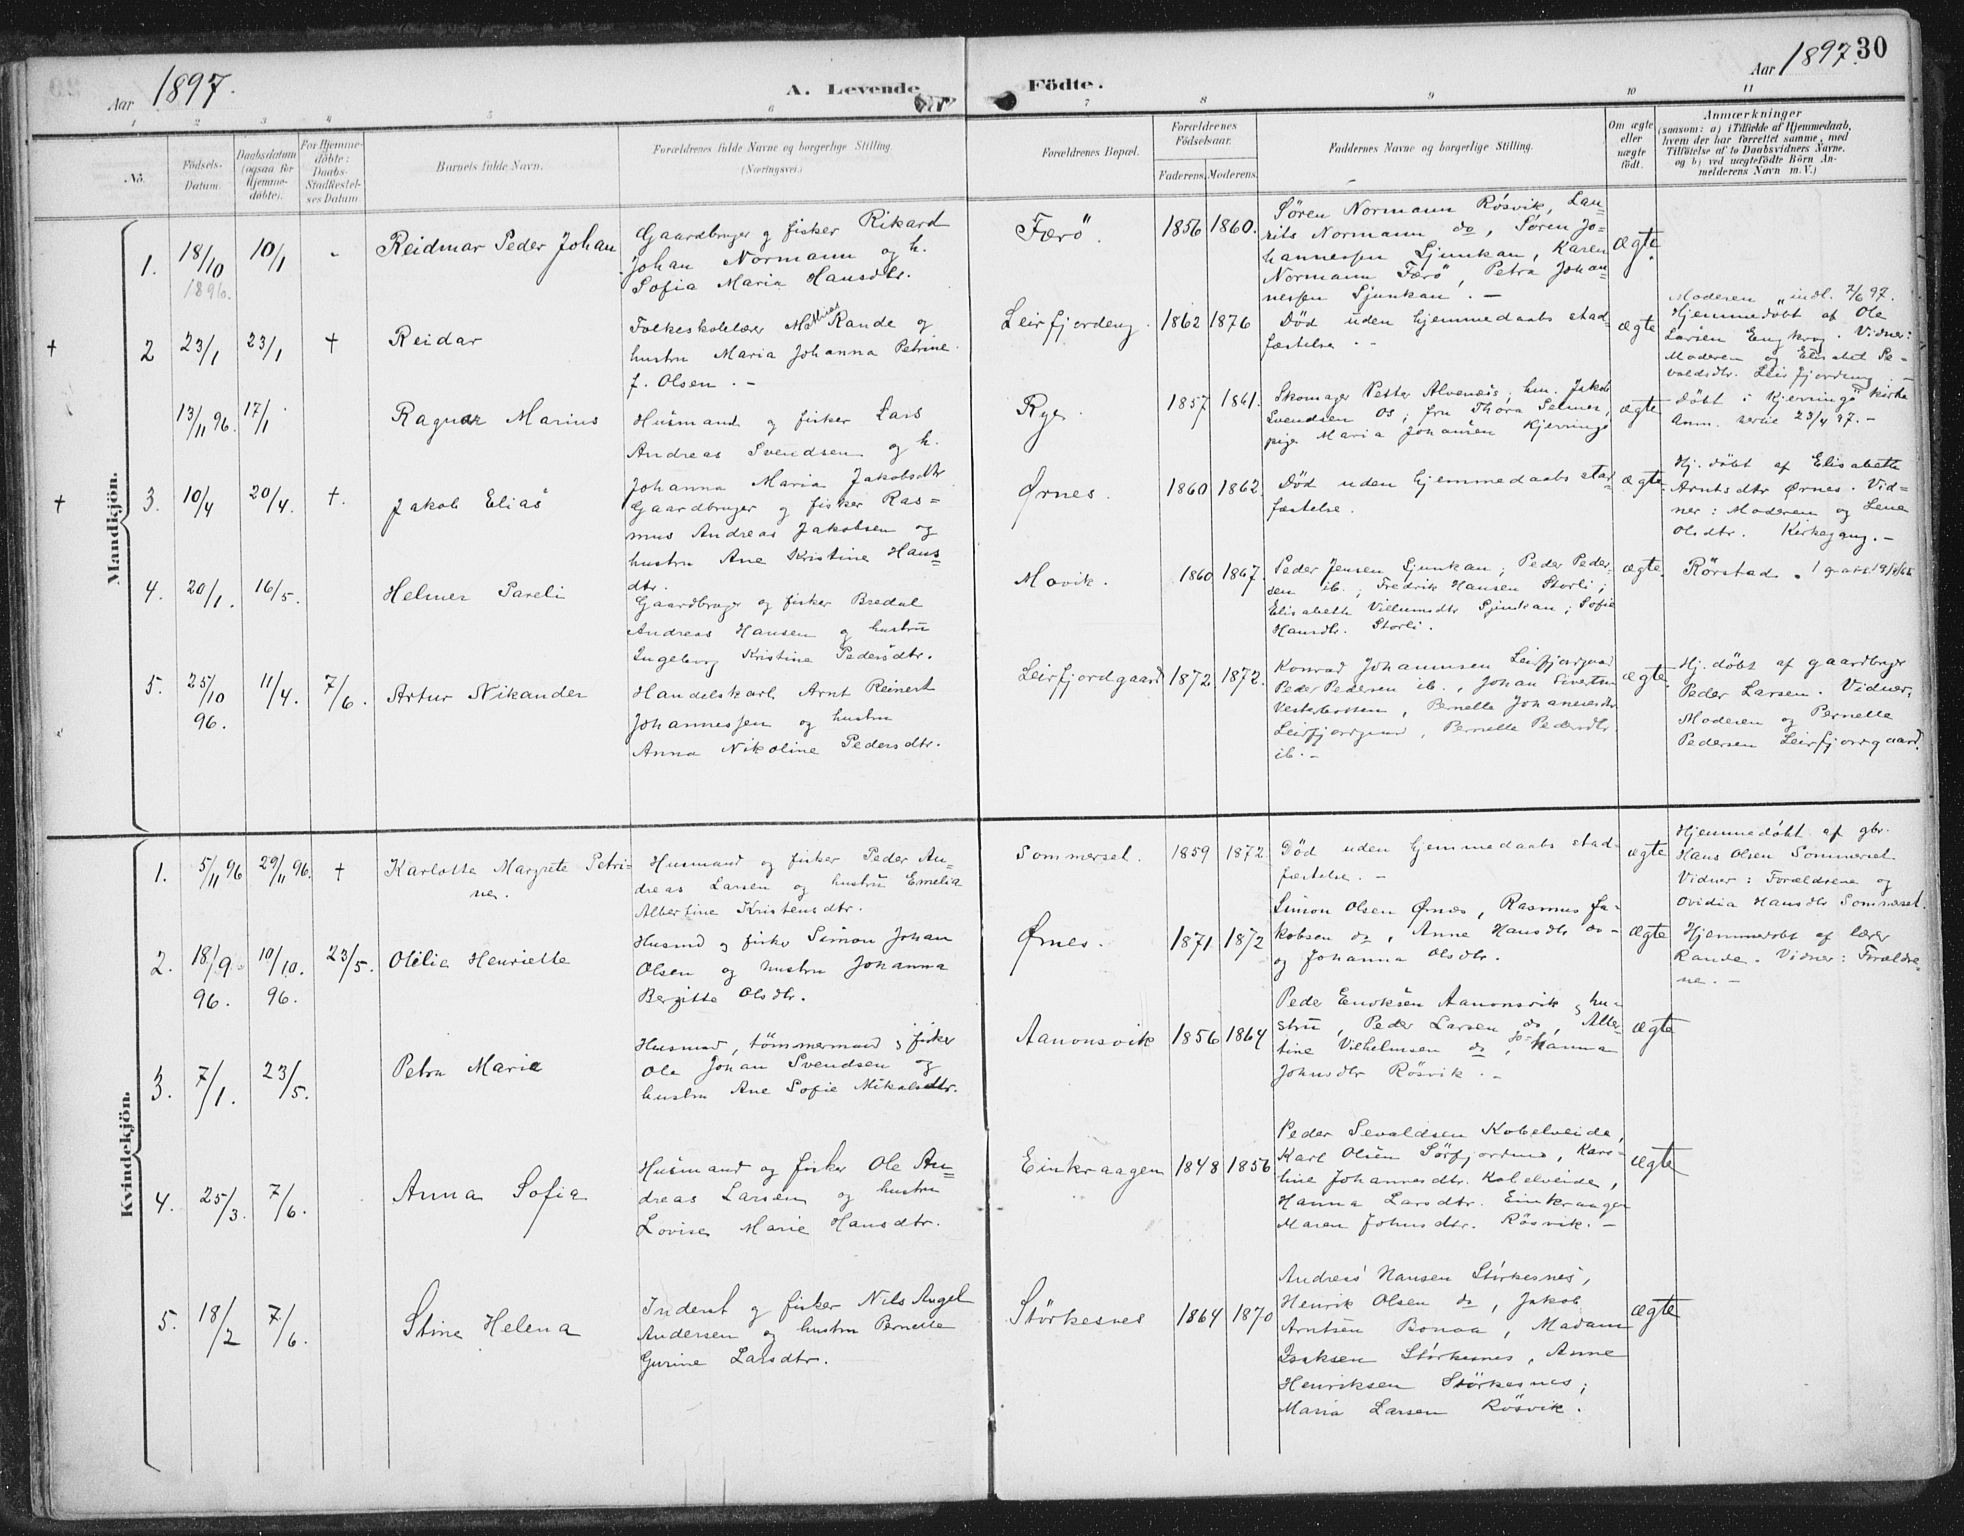 Aar 1897. A. Levende Födte. Aar 1897. 30
1 2 3 4 5 6 7 8 9 10 11
No. Födsels-Datum. Daabsdatum (ogsaa for Hjemmedöbte). For Hjemmedöbte: Daabs-Stadfæstelses Datum. Barnets fulde Navn. Forældrenes fulde Navne og borgerlige Stilling. (Næringsvei.) Forældrenes Bopæl. Forældrenes Födselsaar. Faderens. Moderens. Faddernes Navne og borgerlige Stilling. Om ægte eller uægte födt. Anmærkninger
(saasom: a) i Tilfælde af Hjemmedaab,
hvem der har forrettet samme, med
Tilföielse af to Daabsvidners Navne,
og b) ved uægtefödte Börn Anmelderens Navn m. V.)
Mandkjön.
1. 18/10 1896. 10/1 - Reidmar Peder Johan
Gaardbruger g fisker Rikard
Johan Normann og h.
Sofia Maria Hansdtr.
Færö. 1856 1860.
Søren Normann Røsvik, Lau-
rits Normann do, Søren Jo-
hannessen Sjunkan, Karen
Normann Færö, Petra Johan-
nessen Sjunkan. -
ægte.
+ 2 23/1 23/1 + Reidar
Folkeskolelærer Mathias Rande og
hustru Maria Johanna Petrine
f. Olsen. -
Leirfjorden. 1862 1876
Død uden hjemmedaabs stad-
fæstelse. -
ægte
Moderen indl. 7/6 97.
Hjemmedøbt af Ole
Larsen Engkrog. Vidner:
Moderen og Elisabet Se-
valdsdtr. Leirfjorden. -
13/11 96. 17/1. Ragnar Marius
Husmand og fisker Lars
Andreas Svendsen og h.
Johanna Maria Jakobsdtr
Rye. 1857 1861.
Skomager Petter Alvenæs; hm. Jakob
Svendsen Os; fru Thora Selmer,
pige Maria Johansen Kjerringø
ægte
døbt i Kjerringø kirke
Anm. 23/4 97. -
+ 3. 10/4 20/4. +. Jakob Elias
Gaardbruger g fisker Ras-
mus Andreas Jakobsen og
hustru Ane Kristine Hans
dtr.
Ørnes. 1860 1862.
Død uden hjemmedaabs stad-
fæstelse.
ægte
Hj. døbt af Elisabette
Arntsdtr Ørnes. Vid-
ner: Moderen og Lene
Olsdtr. Kirkegang. -
4. 20/1. 16/5. Helmer Pareli
Gaardbruger og fisker Bredal
Andreas Hansen og hustru
Ingeborg Kristine Pedersdtr.
Movik. 1860 1867.
Peder Jensen Sjunkan; Peder Peder-
sen ib.; Fredrik Hansen Storli;
Elisabette Villumsdtr Sjunkan; Sofie
Hansdtr. Storli.
ægte.
Rörstad.
5. 25/10 96. 11/4. 7/6. Artur Nikander
Handelskarl Arnt Reinert
Johannessen og hustru
Anna Nikoline Pedersdtr.
Leirfjordgaard 1872 1872.
Konrad Johannsen Leirfjordgaard
Peder Pedersen ib., Johan Sivertsen
Vesterbotten, Pernella Johannesdtr
Leirfjordgaard, Pernelle Pedersdtr
ib. -
ægte
Hj. døbt af gaardbruger
Peder Larsen. Vidner,
Moderen og Pernella
Pedersen Leirfjordgaard.
Kvindekjön.
1. 5/11 96 29/11 96. + Karlotte Margrete Petri-
ne.
Husmand og fisker Peder An-
dreas Larsen og hustru Emelia
Albertine Kristensdtr.
Sommerset. 1859 1872
Død uden hjemmedaabs stad-
fæstelse. -
ægte
Hjemmedøbt af gbr.
Hans Olsen Sommerset
Vidner: Forældrene og
Ovidia Hansdtr Sommerset.
2. 18/9. 96. 10/10. 96. 23/5. Otilie Henriette
Husmd g fisker Simon Johan
Olsen og hustru Johanna
Bergitte Olsdtr.
Ørnes. 1871 1872
Simon Olsen Ørnes, Rasmus Ja-
kobsen do, Anne Hansdtr do -
og Johanna Olsdtr.
ægte
Hjemmedøbt af lærer
Rande. Vidner: Forældre-
ne. -
3. 7/1. 23/5. Petra Marie
Husmand, tømmermand g fisker
Ole Johan Svendsen og
hustru Ane Sofie Mikalsdtr.
Aanonsvik 1856 1864
Peder Enoksen Aanonsvik g hu-
stru, Peder Larsen do, Alber-
tine Vilhelmsen do, Johanna
Johnsdtr Røsvik. -
ægte
4. 25/3. 7/6. Anna Sofia
Husmand og fisker Ole An-
dreas Larsen og hustru
Lovise Marie Hansdtr.
Einkraagen 1848 1856
Peder Sevaldsen Kobelveide,
Karl Olsen Sørfjorden, Karo-
line Johannesdtr. Kobelveide,
Hanna Larsdtr. Einkraagen
Maren Johnsdtr. Røsvik. -
ægte
5. 18/2 7/6. Stine Helena
Inderst g fisker Nils Angel
Andersen og hustru Pernelle
Gurine Larsdtr.
Störkesnes 1864 1870
Andreas Hansen Störkesnes,
Henrik Olsen do, Jakob
Arntsen Bonaa, Madam
Isaksen Störkesnes, Anne
Henriksen Störkesnes;
Maria Larsen Røsvik.
ægte